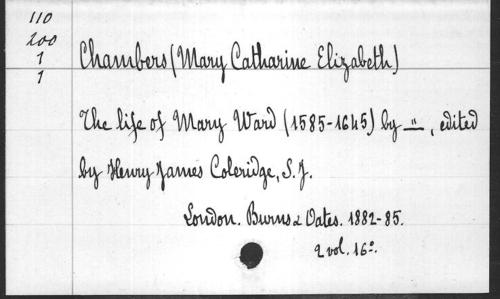 110
200
1
1
Chambers (Mary Catharine Elizabeth)
The life of Mary Ward (1585-1645) by ", edited
by Henry James Coleridge, S. J.
London. Burns & Oates. 1882-85.
2 vol. 16º.